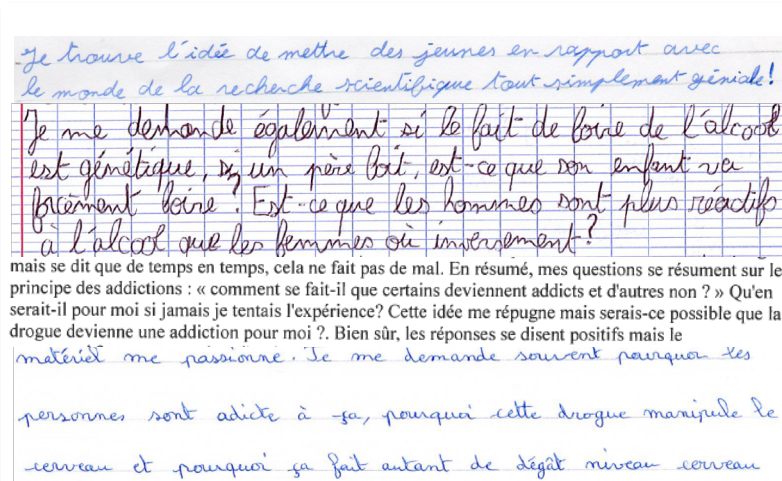 Je trouve l'idée de mettre des jeunes en rapport avec
le monde de la recherche scientifique tout simplement géniale!
Je me demande également si le fait de boire de l'alcool
est génétique, si un père boit, est-ce que son enfant va
forcément boire? Est-ce que les hommes sont plus réactifs
à l'alcool que les femmes où inversement?
mais se dit que de temps en temps, cela ne fait pas de mal. En résumé, mes questions se résument sur le
principe des addictions : « comment se fait-il que certains deviennent addicts et d'autres non ? » Qu'en
serait-il pour moi si jamais je tentais l'expérience? Cette idée me répugne mais serais-ce possible que la
drogue devienne une addiction pour moi ?. Bien sûr, les réponses se disent positifs mais le
matériel me passionne. Je me demande souvent pourquoi les
personnes sont adicte à ça, pourquoi cette drogue manipule le
cerveau et pourquoi ça fait autant de dégât niveau cerveau